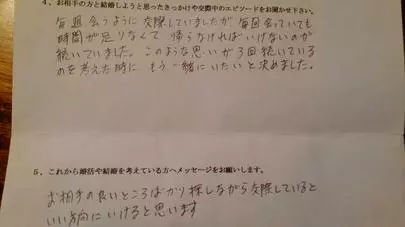 4、お相手の方と結婚しようと思ったきっかけや交際中のエピソードをお聞かせ下さい。
毎週会うように交際していましたが毎回会っていても
時間が足りなくて 帰らなければいけないのが
続いていました。このような思いが3回続いている
のを考えた時に もう一緒にいたいと決めました。
5、これから婚活や結婚を考えている方へメッセージをお願いします。
お相手の良いところばかり探しながら交際していると
いい方向にいけると思います